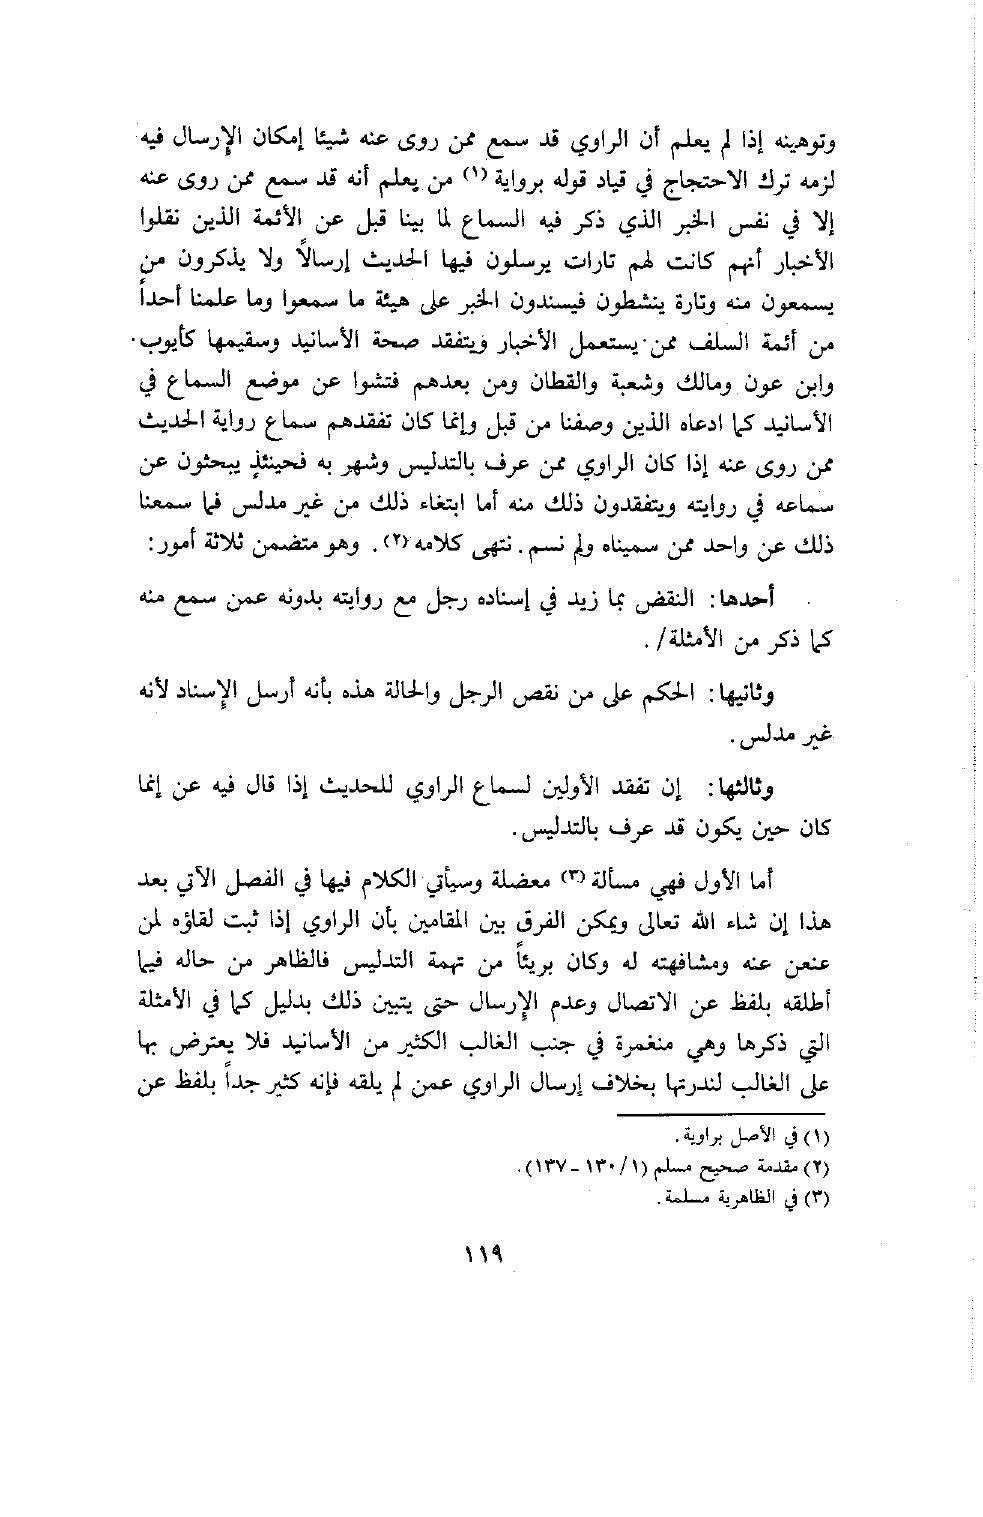 وتوهينه إذا لم يعلم أن الراوي قد سمع ممن روى عنه شيئا إمكان الإرسال فيه
لزمه ترك الاحتجاج في قياد قوله برواية (١) من يعلم أنه قد سمع ممن روى عنه
إلا في نفس الخبر الذي ذكر فيه السماع لما بينا قبل عن الأئمة الذين نقلوا
الأخبار أنهم كانت لهم تارات يرسلون فيها الحديث إرسالاً ولا يذكرون من
يسمعون منه وتارة ينشطون فيسندون الخبر على هيئة ما سمعوا وما علمنا أحداً
من أئمة السلف ممن يستعمل الأخبار ويتفقد صحة الأسانيد وسقيمها كأيوب
وابن عون ومالك وشعبة والقطان ومن بعدهم فتشوا عن موضع السماع في
الأسانيد كما ادعاه الذين وصفنا من قبل وإنما كان تفقدهم سماع رواية الحديث
ممن روى عنه إذا كان الراوي ممن عرف بالتدليس وشهر به فحينئذٍ يبحثون عن
سماعه في روايته ويتفقدون ذلك منه أما ابتغاء ذلك من غير مدلس فما سمعنا
ذلك عن واحد ممن سميناه ولم نسم. نتهى كلامه (٢). وهو متضمن ثلاثة أمور:
أحدها: النقض بما زيد في إسناده رجل مع روايته بدونه عمن سمع منه
كما ذكر من الأمثلة/.
وثانيها: الحكم على من نقص الرجل والحالة هذه بأنه أرسل الإسناد لأنه
غير مدلس.
وثالثها: إن تفقد الأولين لسماع الراوي للحديث إذا قال فيه عن إنما
كان حين يكون قد عرف بالتدليس.
أما الأول فهي مسألة (٣) معضلة وسيأتي الكلام فيها في الفصل الآتي بعد
هذا إن شاء الله تعالى ويمكن الفرق بين المقامين بأن الراوي إذا ثبت لقاؤه لمن
عنعن عنه ومشافهته له وكان بريئاً من تهمة التدليس فالظاهر من حاله فيما
أطلقه بلفظ عن الاتصال وعدم الإرسال حتى يتبين ذلك بدليل كما في الأمثلة
التي ذكرها وهي منغمرة في جنب الغالب الكثير من الأسانيد فلا يعترض بها
على الغالب لندرتها بخلاف إرسال الراوي عمن لم يلقه فإنه كثير جداً بلفظ عن
(١) في الأصل براوية.
(٢) مقدمة صحيح مسلم (١/ ١٣٠ - ١٣٧).
(٣) في الظاهرية مسلمة.
١١٩